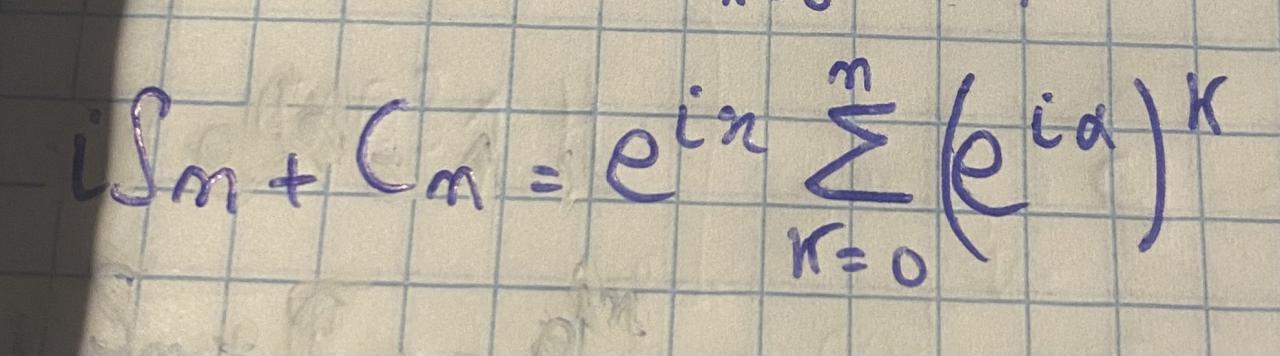 iSn + Cn = e^{ix} \sum_{k=0}^{n} (e^{iα})^k